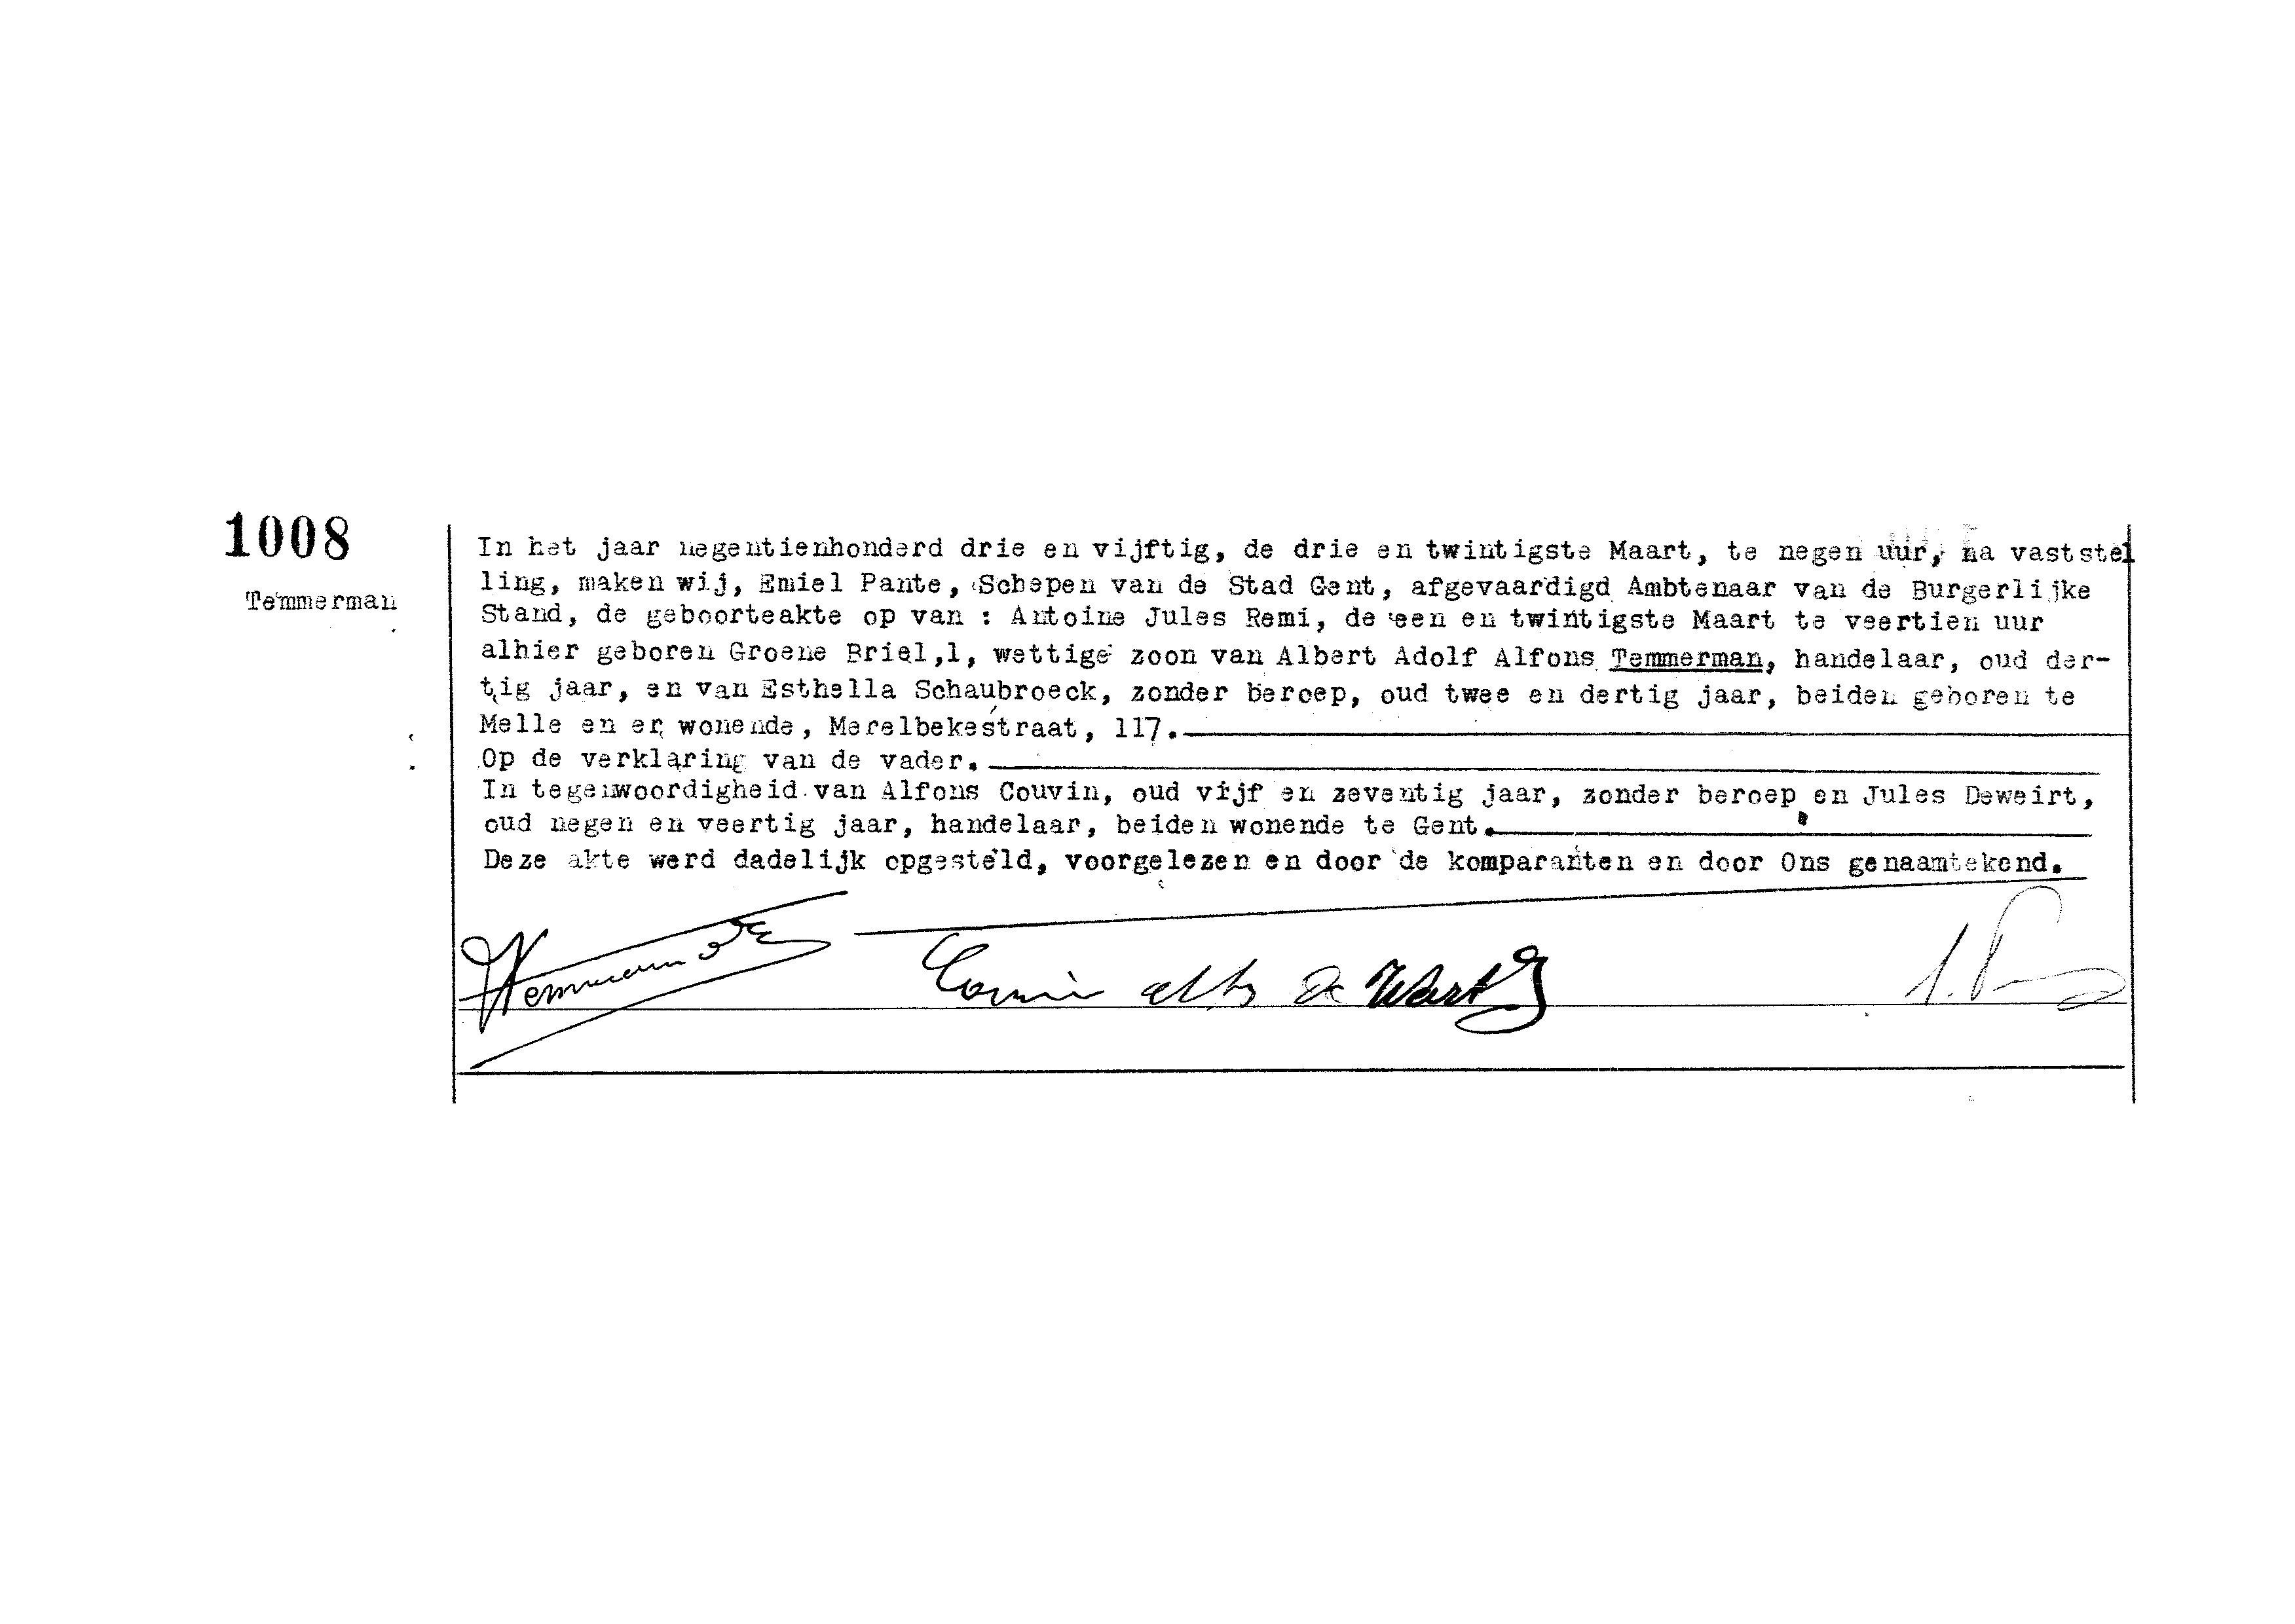 1008
Temmerman
In het jaar negentienhonderd drie en vijftig, de drie en twintigste Maart, te negen uur, na vaststel
ling, maken wij, Emiel Pante, Schepen van de Stad Gent, afgevaardigd Ambtenaar van de Burgerlijke
Stand, de geboorteakte op van : Antoine Jules Remi, de een en twintigste Maart te veertien uur
alhier geboren Groene Briel,1, wettige zoon van Albert Adolf Alfons Temmerman, handelaar, oud der-
tig jaar, en van Esthella Schaubroeck, zonder beroep, oud twee en dertig jaar, beiden geboren te
Melle en er wonende, Merelbekestraat, 117.
Op de verklaring van de vader.
In tegenwoordigheid van Alfons Couvin, oud vijf en zeventig jaar, zonder beroep en Jules Deweirt,
oud negen en veertig jaar, handelaar, beiden wonende te Gent.
Deze akte werd dadelijk opgesteld, voorgelezen en door de komparanten en door Ons genaamtekend.